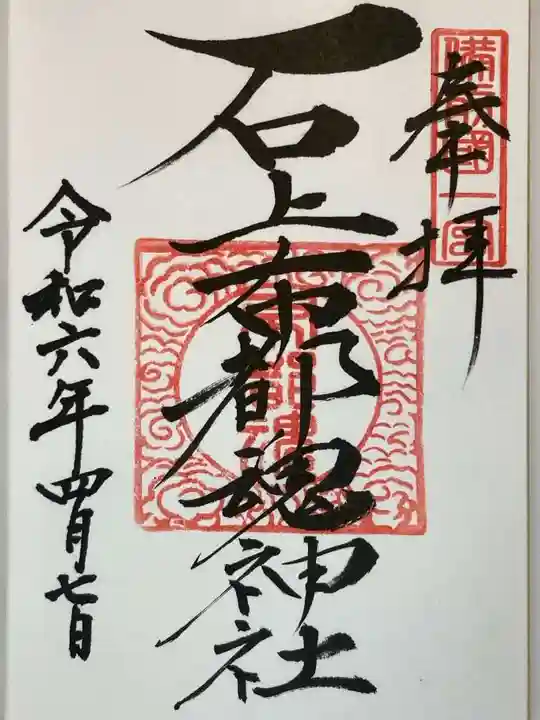 備前國一宮
奉拝
石上布都魂神社
令和六年四月七日